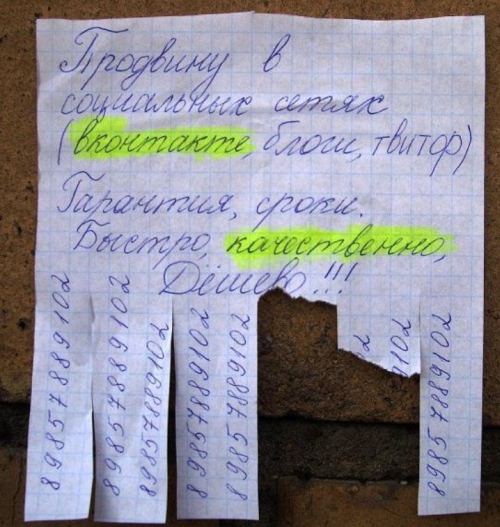 Продвину в
социальных сетях
(вконтакте, блоги, твитор)
Гарантия, сроки.
Быстро, качественно,
Дёшево!!!
89857889102
89857889102
89857889102
89857889102
89857889102
2
9102
89857889102